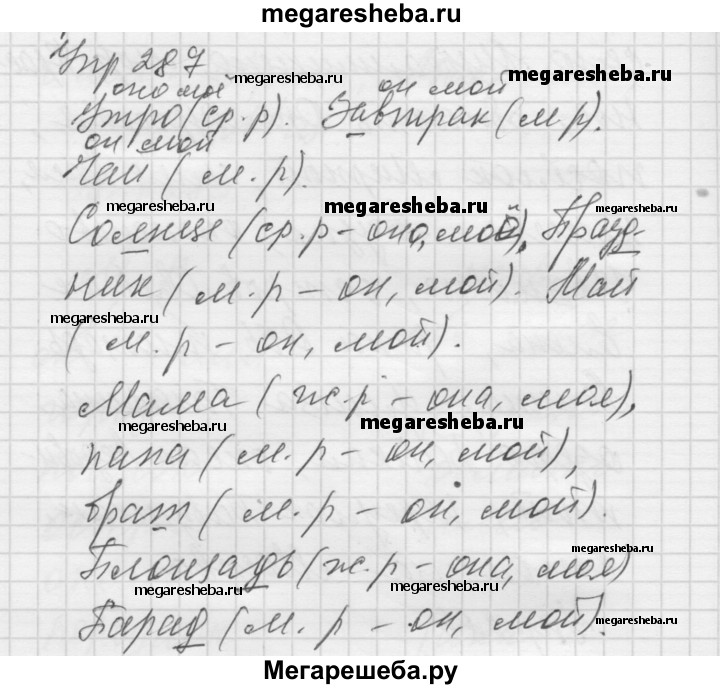 megaresheba.ru
Упр 287
оно моё megaresheba.ru он мой megaresheba.ru
Утро (ср.р). Завтрак (м р).
он мой
Чай (м.р).
megaresheba.ru megaresheba.ru
Солнце (ср.р - оно, моё), Празд-
ник (м.р - он, мой). Май
megaresheba.ru
(м.р - он, мой).
Мама (ж.р - она, моя),
megaresheba.ru megaresheba.ru
папа (м.р - он, мой),
брат (м.р - он, мой).
megaresheba.ru
Площадь (ж.р - она, моя)
megaresheba.ru megaresheba.ru
Парад (м.р - он, мой).
megaresheba.ru
Мегарешеба.ру